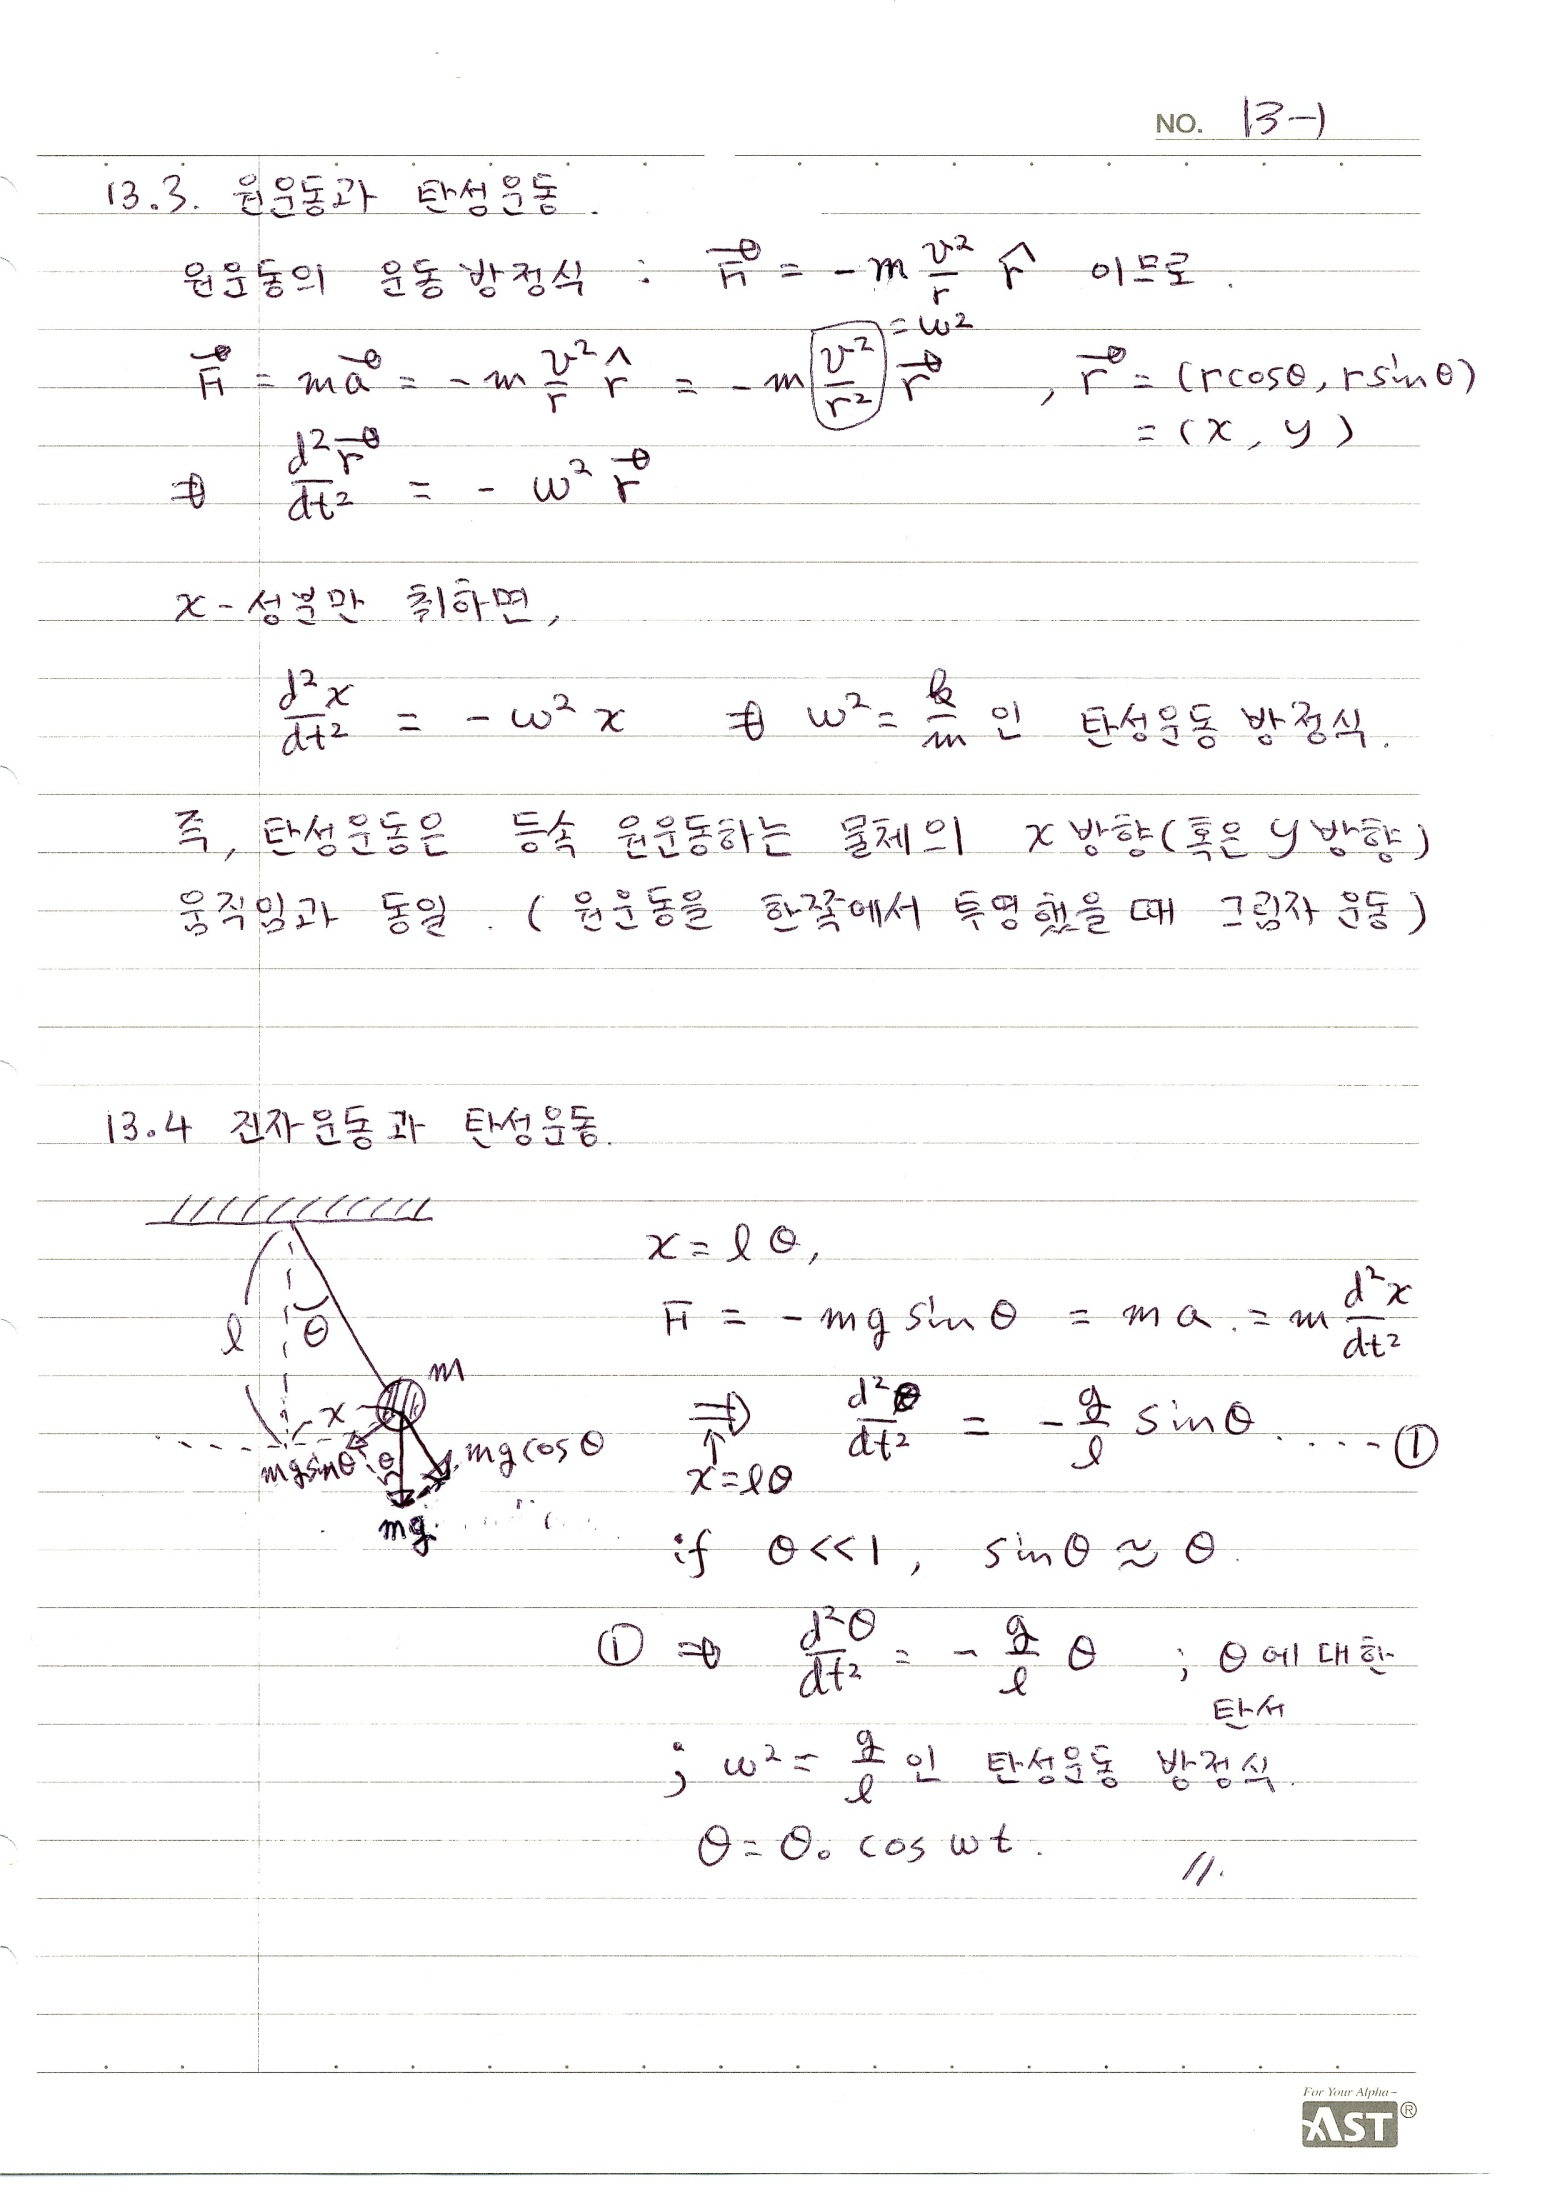 NO. 13-1
13.3. 원운동과 탄성운동.
원운동의 운동방정식 : F⃗ = -m v²/r r̂ 이므로.
F⃗ = ma⃗ = -m v²/r r̂ = -m v²/r² r⃗ , r⃗ = (rcosθ, rsinθ)
= ω²
= (x, y)
⇒ d²r⃗/dt² = - ω² r⃗
x-성분만 취하면,
d²x/dt² = - ω² x ⇒ ω² = k/m 인 탄성운동 방정식.
즉, 탄성운동은 등속 원운동하는 물체의 x방향(혹은 y방향)
움직임과 동일. (원운동을 한쪽에서 투영했을 때 그림자 운동)
13.4 진자운동과 탄성운동.
x = lθ,
F = - mg sinθ = ma. = m d²x/dt²
l θ m
x
mgsinθ θ mg cosθ
mg.
⇒ d²θ/dt² = - g/l sinθ ..... ①
x = lθ
if θ<<1, sinθ ≈ θ.
① ⇒ d²θ/dt² = - g/l θ ; θ에 대한
탄서
; ω² = g/l 인 탄성운동 방정식.
θ = θ₀ cos ωt. //.
For Your Alpha~
AST®